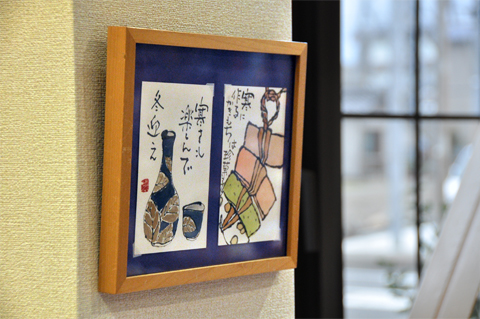 寒さも
楽しんで
冬迎え
寒に
作る
かきもち